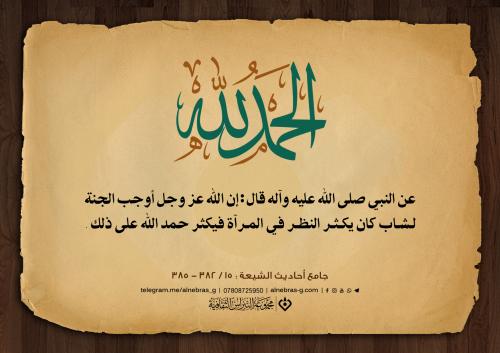 الحمد لله
عن النبي صلى الله عليه وآله قال: إن الله عز وجل أوجب الجنة
لشاب كان يكثر النظر في المرآة فيكثر حمد الله على ذلك .
جامع أحاديث الشيعة : ١٥ / ٣٨٢ - ٣٨٥
telegram.me/alnebras_g | 07808725950 | alnebras-g.com |
مجموعة النبراس الثقافية